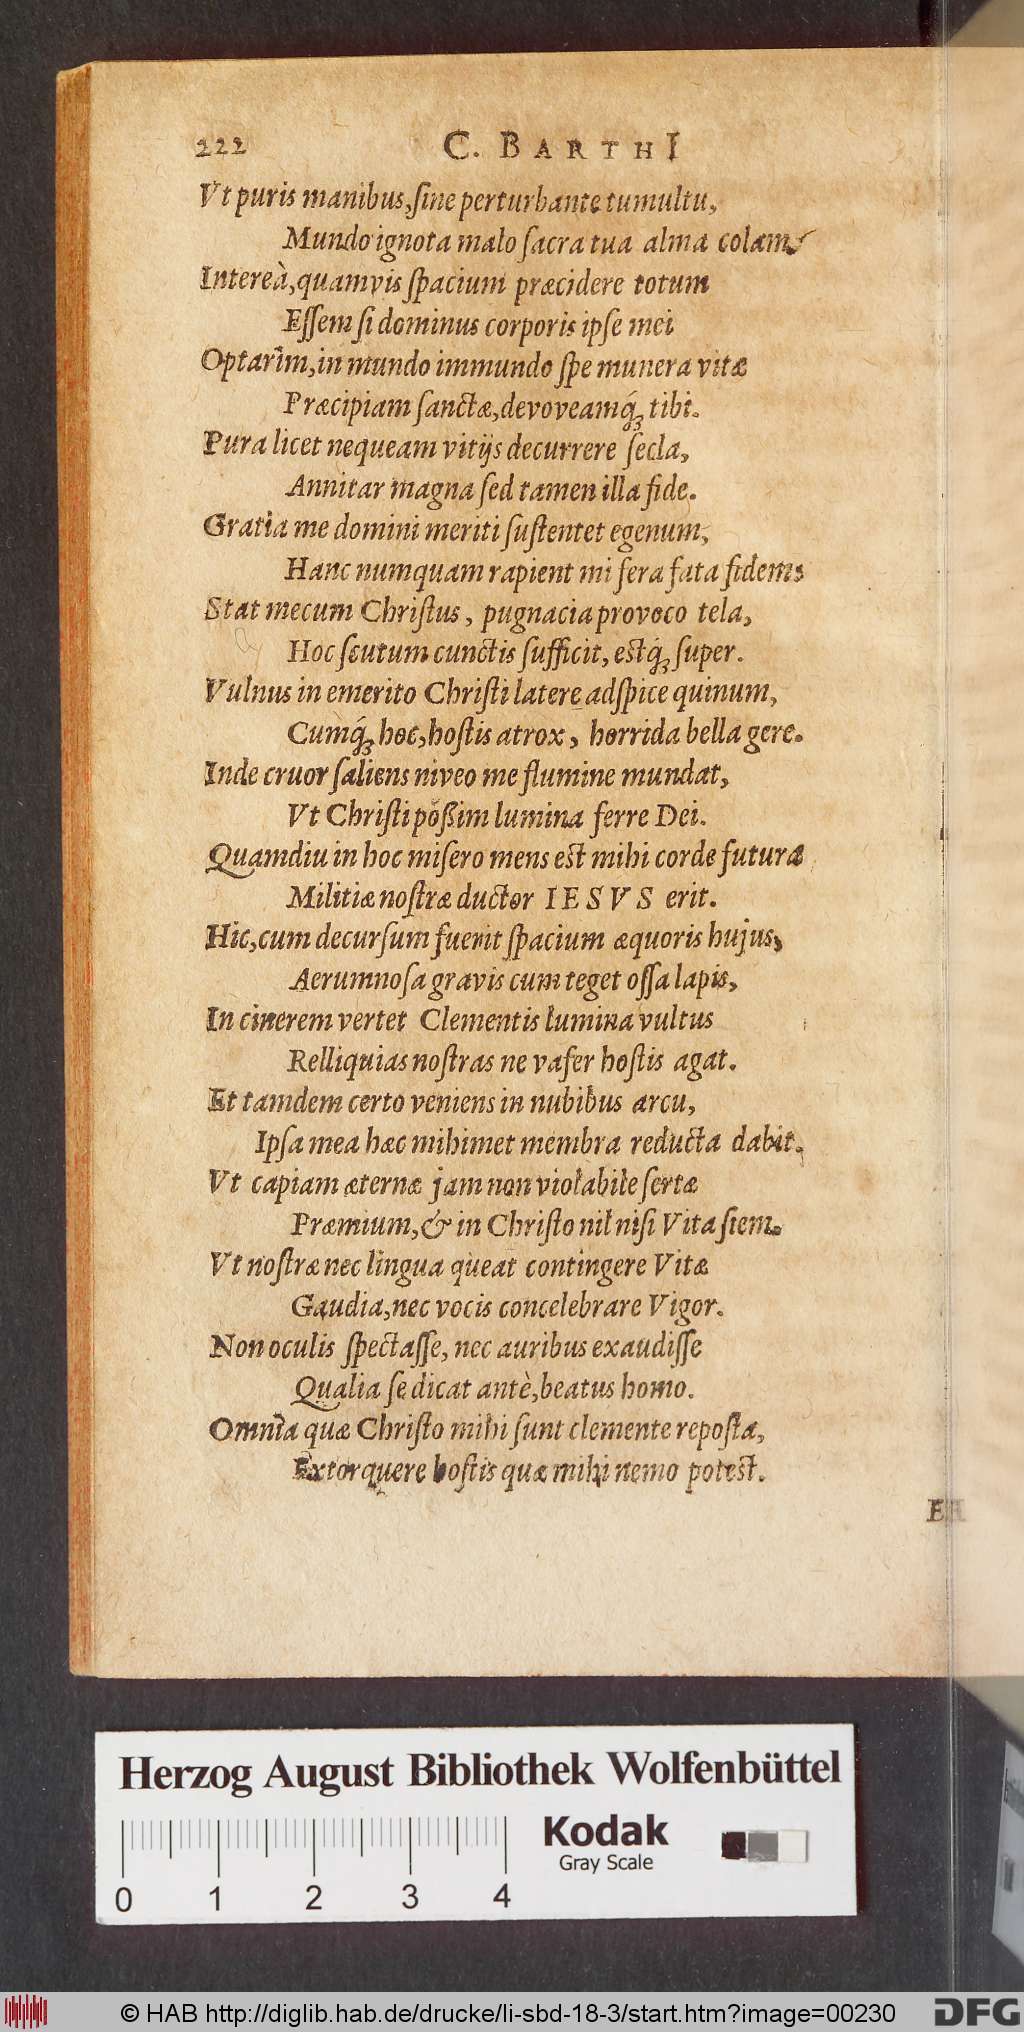 222 C. BARTHI
Vt puris manibus, ſine perturbante tumultu,
Mundo ignota malo ſacra tua alma colam.
Intereà, quamvis ſpacium præcidere totum
Eſſem ſi dominus corporis ipſe mei
Optarim, in mundo immundo ſpe munera vitæ
Præcipiam ſanctæ, devoveamq́; tibi.
Pura licet nequeam vitijs decurrere ſecla,
Annitar magna ſed tamen illa fide.
Gratia me domini meriti ſuſtentet egenum,
Hanc numquam rapient mi fera fata fidem:
Stat mecum Chriſtus, pugnacia provoco tela,
Hoc ſcutum cunctis ſufficit, eſtq́; ſuper.
Vulnus in emerito Chriſti latere adſpice quinum,
Cumq́; hoc, hoſtis atrox, horrida bella gere.
Inde cruor ſaliens niveo me flumine mundat,
Vt Chriſti poßim lumina ferre Dei.
Quamdiu in hoc miſero mens eſt mihi corde futura
Militiæ noſtræ ductor IESVS erit.
Hic, cum decurſum fuerit ſpacium æquoris hujus,
Aerumnoſa gravis cum teget oſſa lapis,
In cinerem vertet Clementis lumina vultus
Relliquias noſtras ne vafer hoſtis agat.
Et tamdem certo veniens in nubibus arcu,
Ipſa mea hæc mihimet membra reducta dabit.
Vt capiam æternæ jam non violabile ſertæ
Præmium, & in Chriſto nil niſi Vita ſiem.
Vt noſtræ nec lingua queat contingere Vitæ
Gaudia, nec vocis concelebrare Vigor.
Non oculis ſpectaſſe, nec auribus exaudiſſe
Qualia ſe dicat antè, beatus homo.
Omnia quæ Chriſto mihi ſunt clemente repoſta,
Extorquere hoſtis quæ mihi nemo poteſt.
Herzog August Bibliothek Wolfenbüttel
Kodak
Gray Scale
0 1 2 3 4
© HAB http://diglib.hab.de/drucke/li-sbd-18-3/start.htm?image=00230 DFG